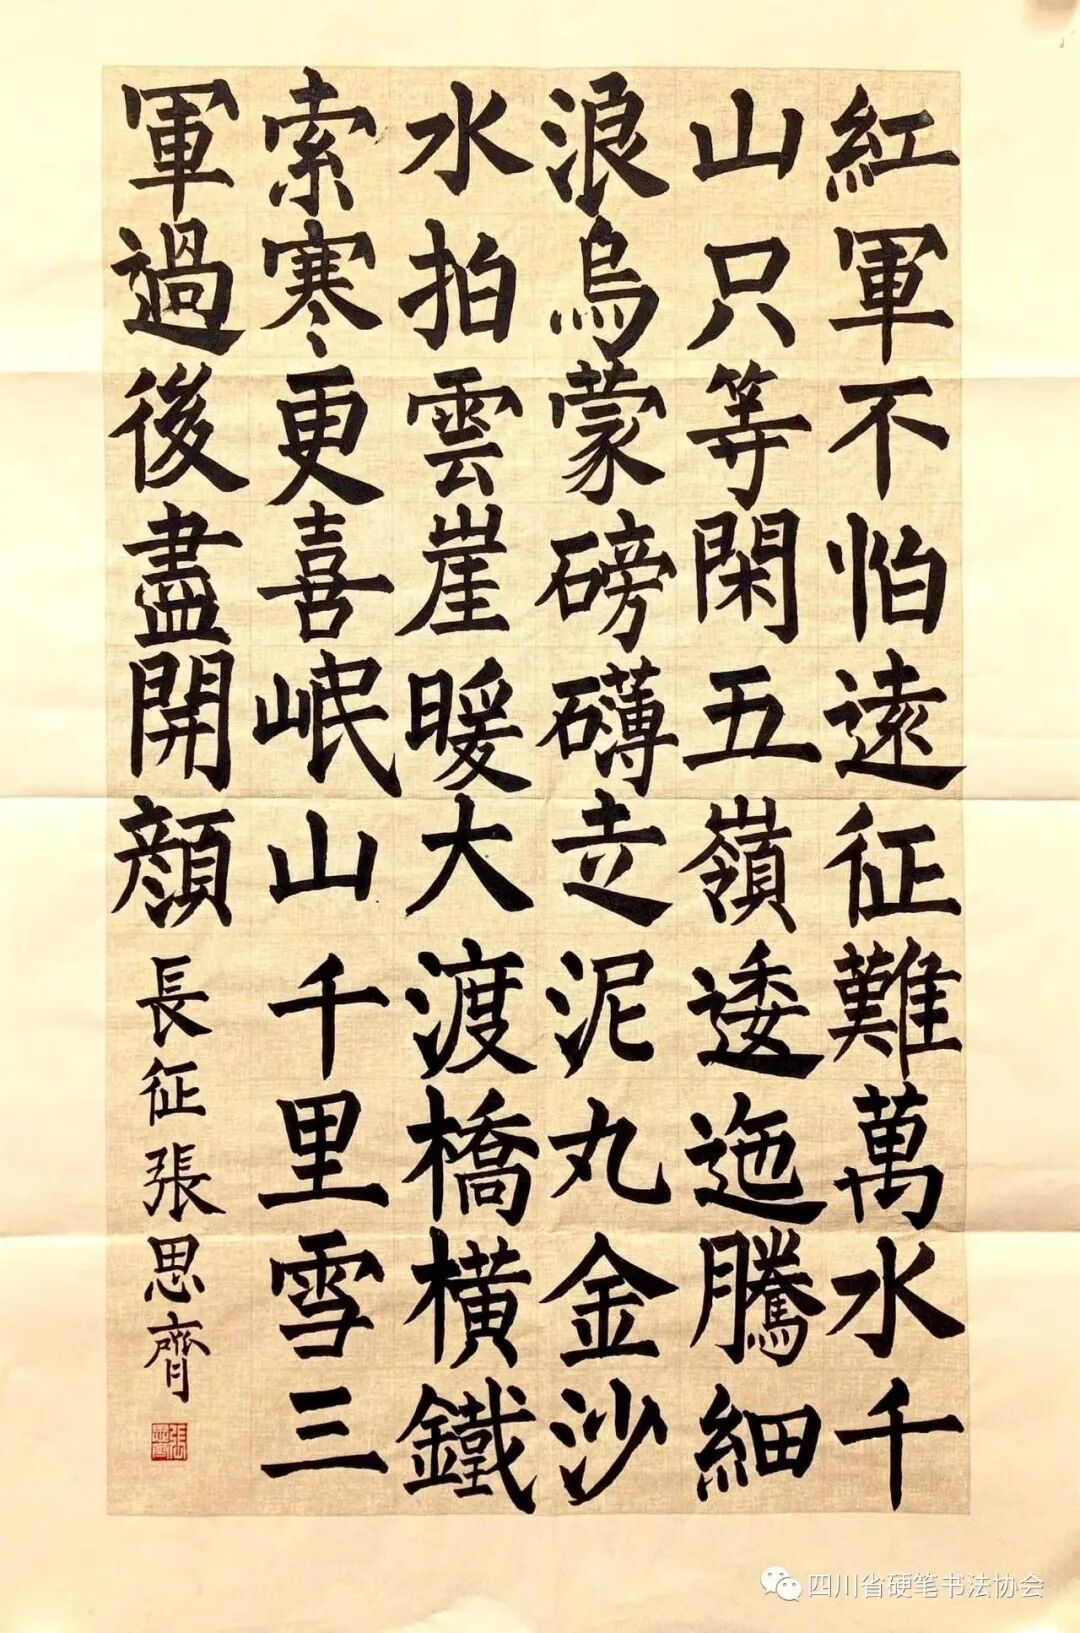 紅軍不怕遠征難萬水千
山只等閑五嶺逶迤騰細
浪烏蒙磅礴走泥丸金沙
水拍雲崖暖大渡橋橫鐵
索寒更喜岷山千里雪三
軍過後盡開顏
長征張思齊
張思齊
四川省硬笔书法协会